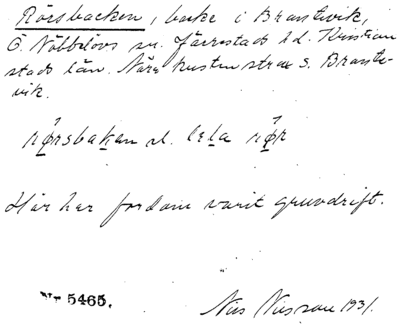 Rörsbacken, backe i Brantevik,
Ö. Nöbbelövs sn. Järrestads hd. Kristian
stads län. Nära kusten strax S. Brante-
vik.
rø̂rsbakan el. lela rø̂r
Här har fordom varit gruvdrift.
Nr 5465.
Nils Nilsson 1931.